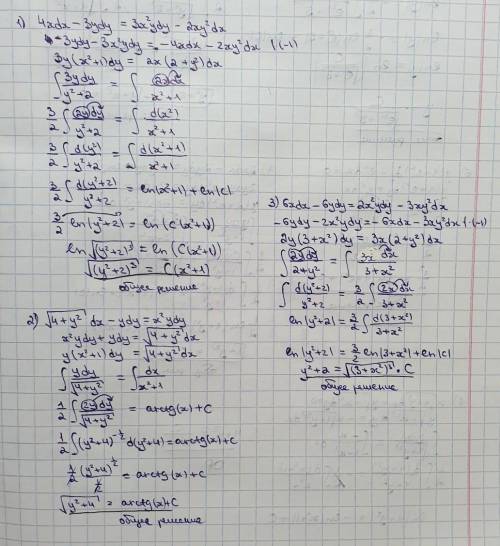 1) 4xdx - 3ydy = 3x²ydy - 2xy²dx
-3ydy - 3x²ydy = -4xdx - 2xy²dx |·(-1)
3y(x²+1)dy = 2x(2+y²)dx
∫ 3ydy/(y²+2) = ∫ 2xdx/(x²+1)
3/2 ∫ 2ydy/(y²+2) = ∫ d(x²)/(x²+1)
3/2 ∫ d(y²)/(y²+2) = ∫ d(x²+1)/(x²+1)
3/2 ∫ d(y²+2)/(y²+2) = ln(x²+1) + ln|C|
3/2 ln(y²+2) = ln(C(x²+1))
ln √(y²+2)³ = ln(C(x²+1))
√(y²+2)³ = C(x²+1)
общее решение
2) √4+y² dx - ydy = x²ydy
x²ydy + ydy = √4+y² dx
y(x²+1)dy = √4+y² dx
∫ ydy/√4+y² = ∫ dx/(x²+1)
1/2 ∫ 2ydy/√4+y² = arctg(x) + C
1/2 ∫ (y²+4)^(-1/2) d(y²+4) = arctg(x) + C
1/2 (y²+4)^(1/2)/(1/2) = arctg(x) + C
√y²+4 = arctg(x) + C
общее решение
3) 6xdx - 6ydy = 2x²ydy - 3xy²dx
-6ydy - 2x²ydy = -6xdx - 3xy²dx |·(-1)
2y(3+x²)dy = 3x(2+y²)dx
∫ 2ydy/(2+y²) = ∫ 3xdx/(3+x²)
∫ d(y²+2)/(y²+2) = 3/2 ∫ 2xdx/(3+x²)
ln|y²+2| = 3/2 ∫ d(3+x²)/(3+x²)
ln|y²+2| = 3/2 ln|3+x²| + ln|C|
y²+2 = √(3+x²)³ · C
общее решение